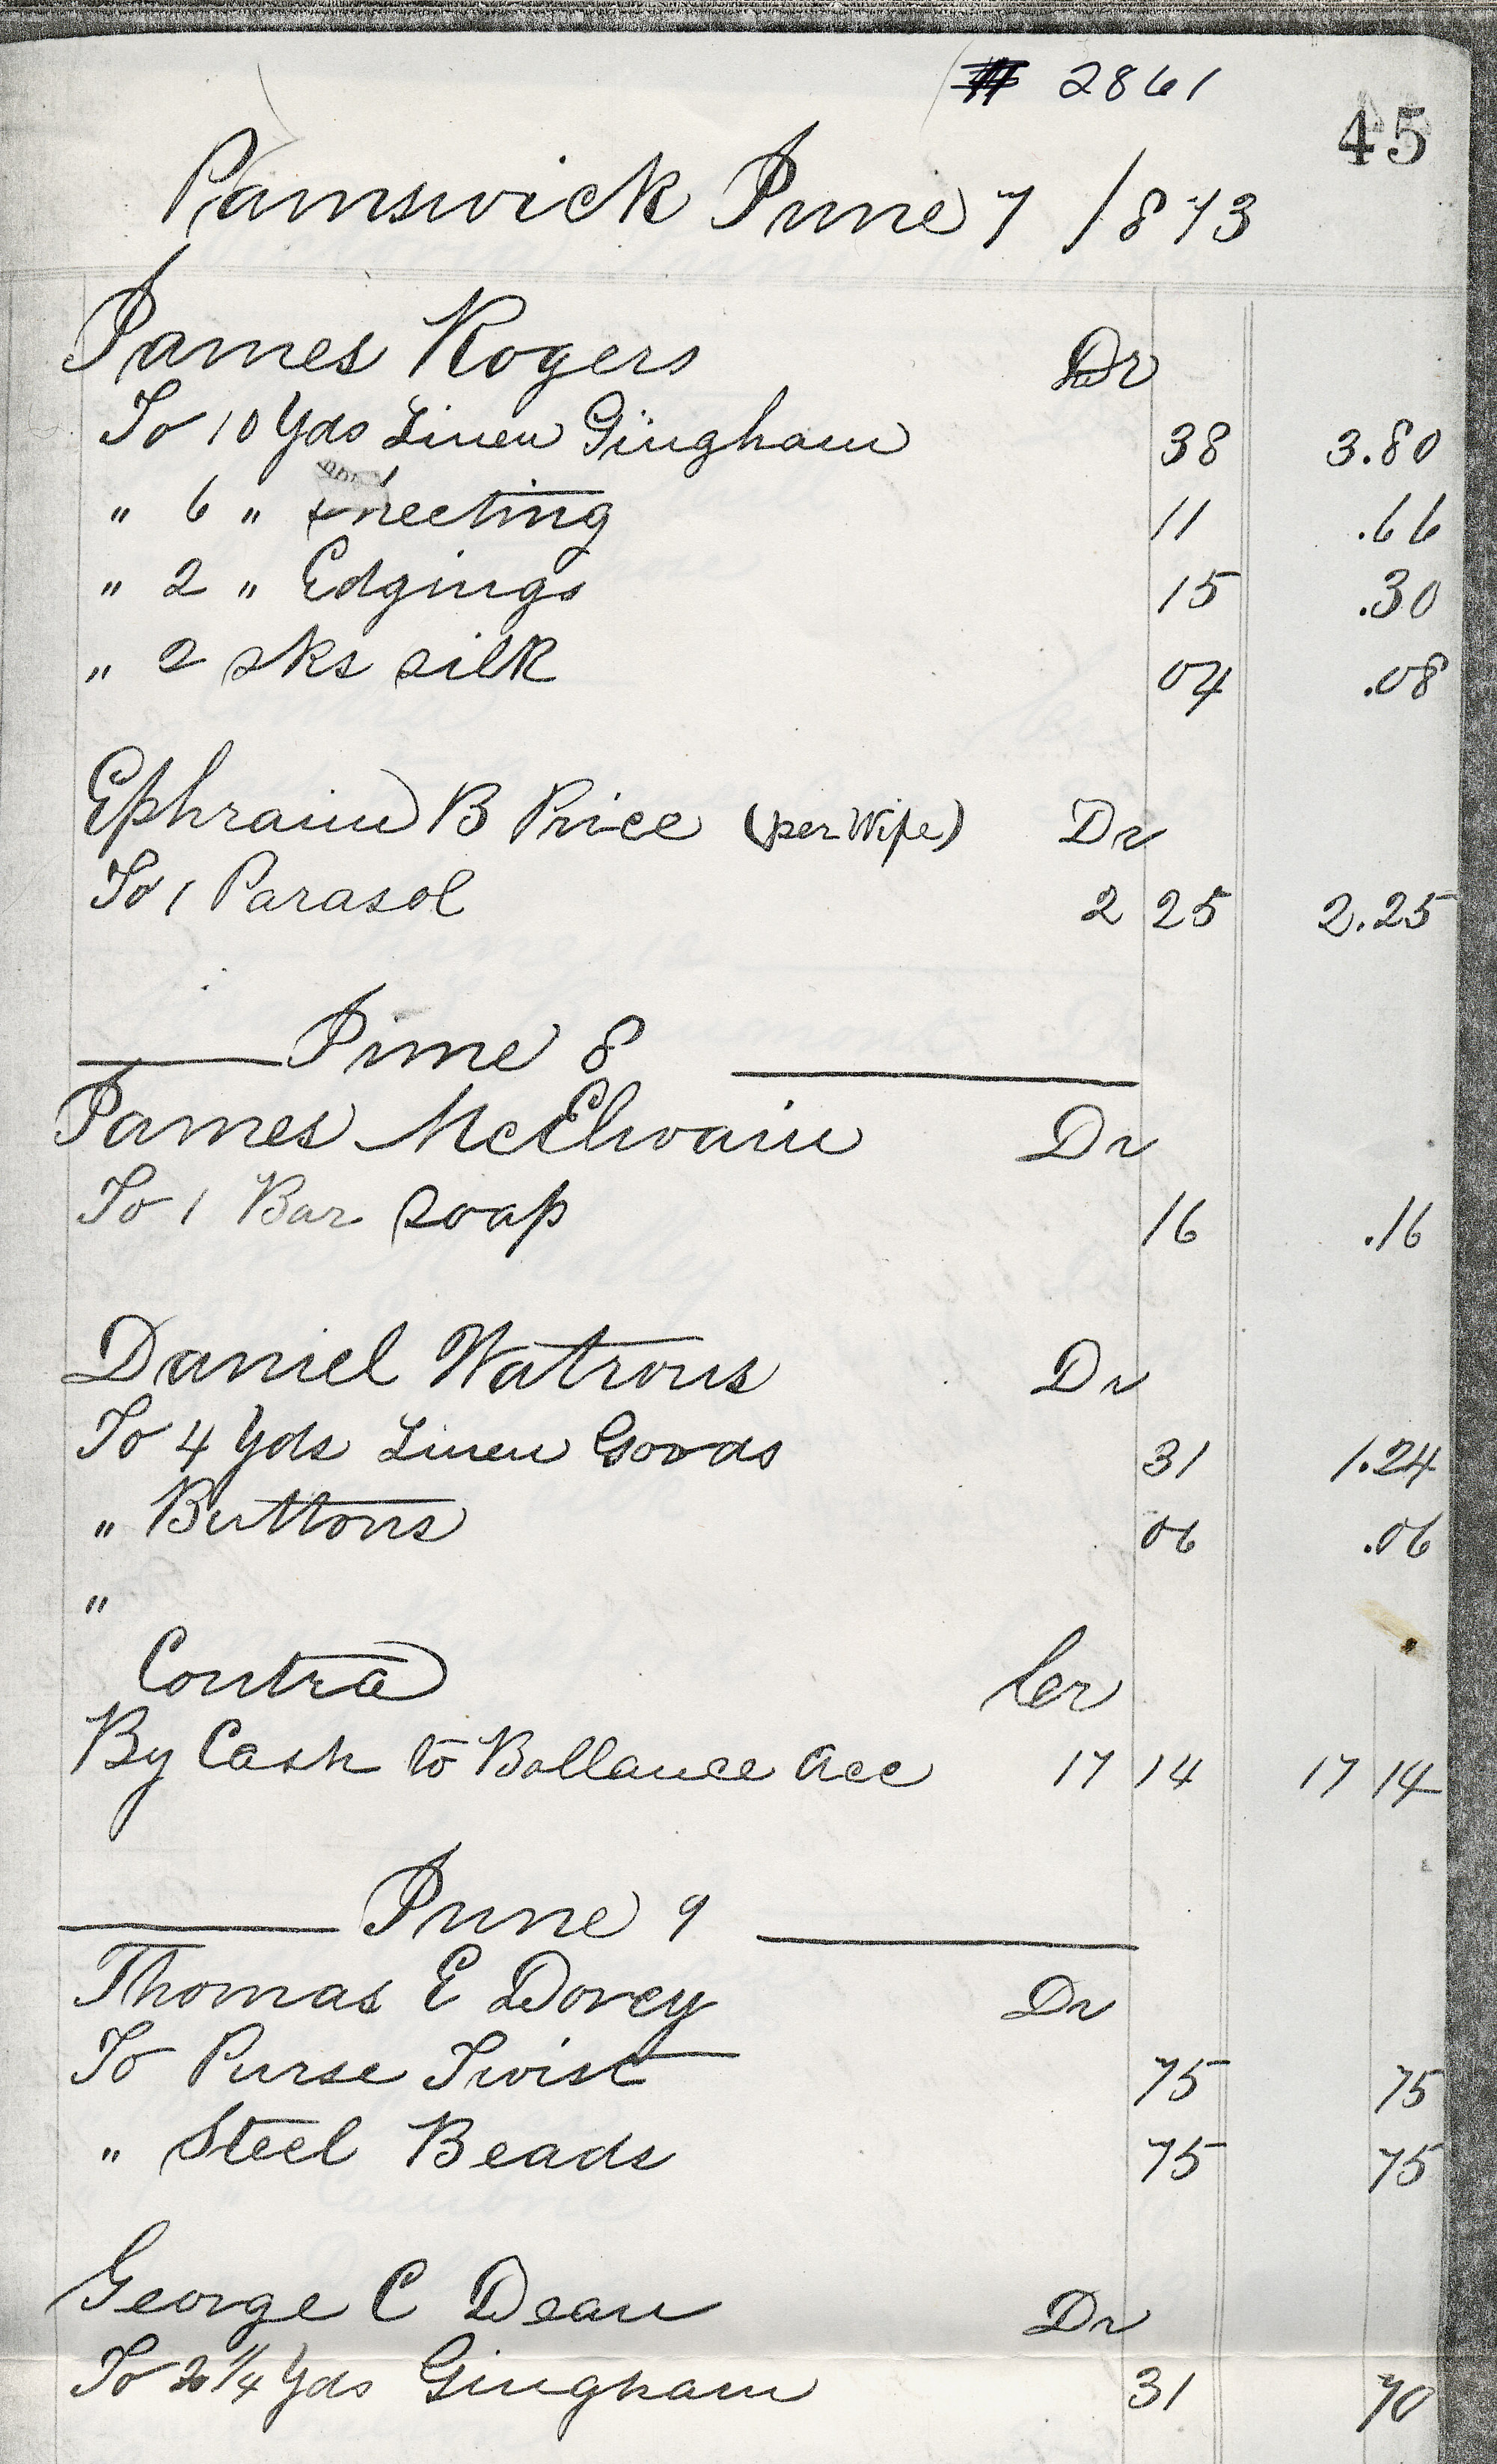 # 2861
45
Pamswick June 7 1873
James Rogers Dr
To 10 Yds Linen Gingham 38 3.80
" 6 " sheeting 11 .66
" 2 " Edgings 15 .30
" 2 sks silk 04 .08
Ephraim B Price (per Wife) Dr
To 1 Parasol 2 25 2.25
June 8
James McElwain Dr
To 1 Bar soap 16 .16
Daniel Watrous Dr
To 4 Yds Linen Goods 31 1.24
" Buttons 06 .06
"
Contra Cr
By Cash to Ballance Acc 17 14 17 14
June 9
Thomas E Dovey Dr
To Purse Twist 75 75
" Steel Beads 75 75
George C Dean Dr
To 2 1/4 Yds Gingham 31 70